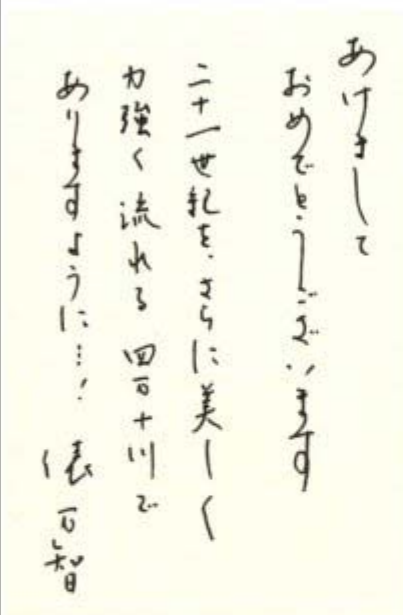 あけまして
おめでとうございます
二十一世紀を、さらに美しく
力強く流れる 四万十川で
ありますように…!
俵万智